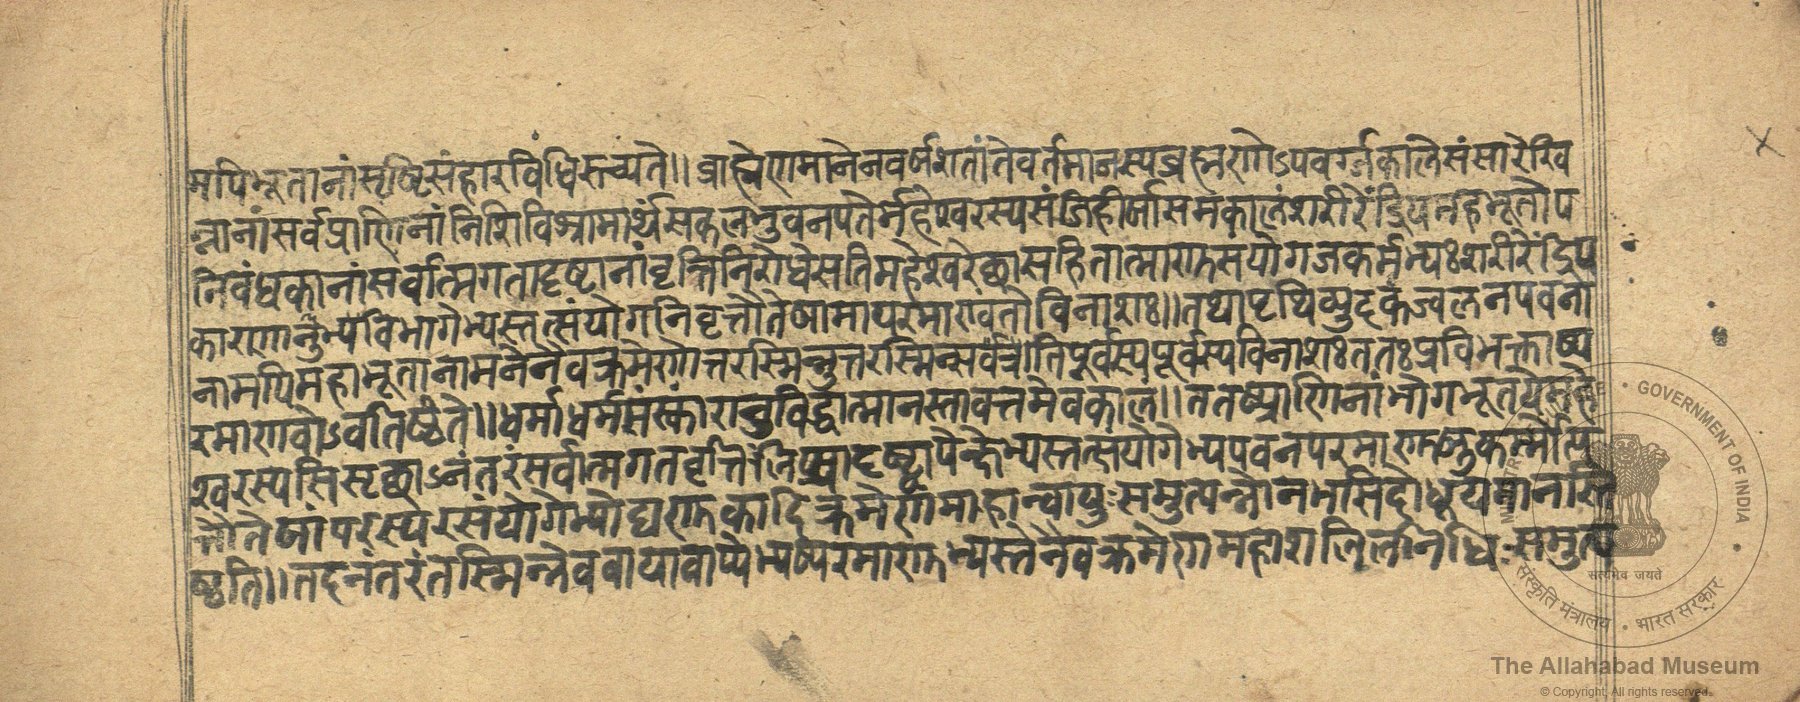 मपिभूतानांसृष्टिसंहारविधिरुच्यते॥ब्राह्मेणमानेनवर्षशतांतेवर्तमानस्यब्रह्मणोऽपवर्गकालेसंसारेखि
न्नानांसर्वप्राणिनांनिशिविश्रामार्थंसकलभुवनपतेर्महेश्वरस्यसंजिहीर्षासमकालंशरीरेंद्रियमहाभूतोप
निबंधकानांसर्वात्मगतादृष्टानांवृत्तिनिरोधेसतिमहेश्वरेच्छासहितात्माणुसंयोगजकर्मभ्यःशरीरेंद्रिय
कारणाणुभ्यविभागेभ्यस्तत्संयोगनिवृत्तौतेषामापरमाण्वंतोविनाशः॥तथापृथिव्युदकज्वलनपवना
नामपिमहाभूतानामनेनैवक्रमेणोत्तरस्मिन्नुत्तरस्मिन्सर्वत्रातिपूर्वस्यपूर्वस्यविनाशःततःप्रविभक्ताष्प
रमाणवोऽवतिष्ठंते॥धर्माधर्मसंस्कारानुविद्धात्मानस्तावत्तमेवकालं॥ततष्प्राणिनांभोगभूतयेमहे
श्वरस्यसिसृक्षाऽनंतरंसर्वात्मगतवृत्तिलब्धादृष्टापेक्षेभ्यस्तत्संयोगेभ्यपवनपरमाणुषुकर्मोत्प
त्तौतेषांपरस्परसंयोगेभ्योद्व्यणुकादिक्रमेणमाहान्वायुःसमुत्पन्नोनभसिदोधूयमानस्ति
ष्ठति॥तदनंतरंतस्मिन्नेववायावाप्येभ्यष्परमाणुभ्यस्तेनैवक्रमेणमहाशलिलनिधिःसमुत्प
GOVERNMENT OF INDIA
सत्यमेव जयते
संस्कृति मंत्रालय • भारत सरकार
The Allahabad Museum
© Copyright, All rights reserved.